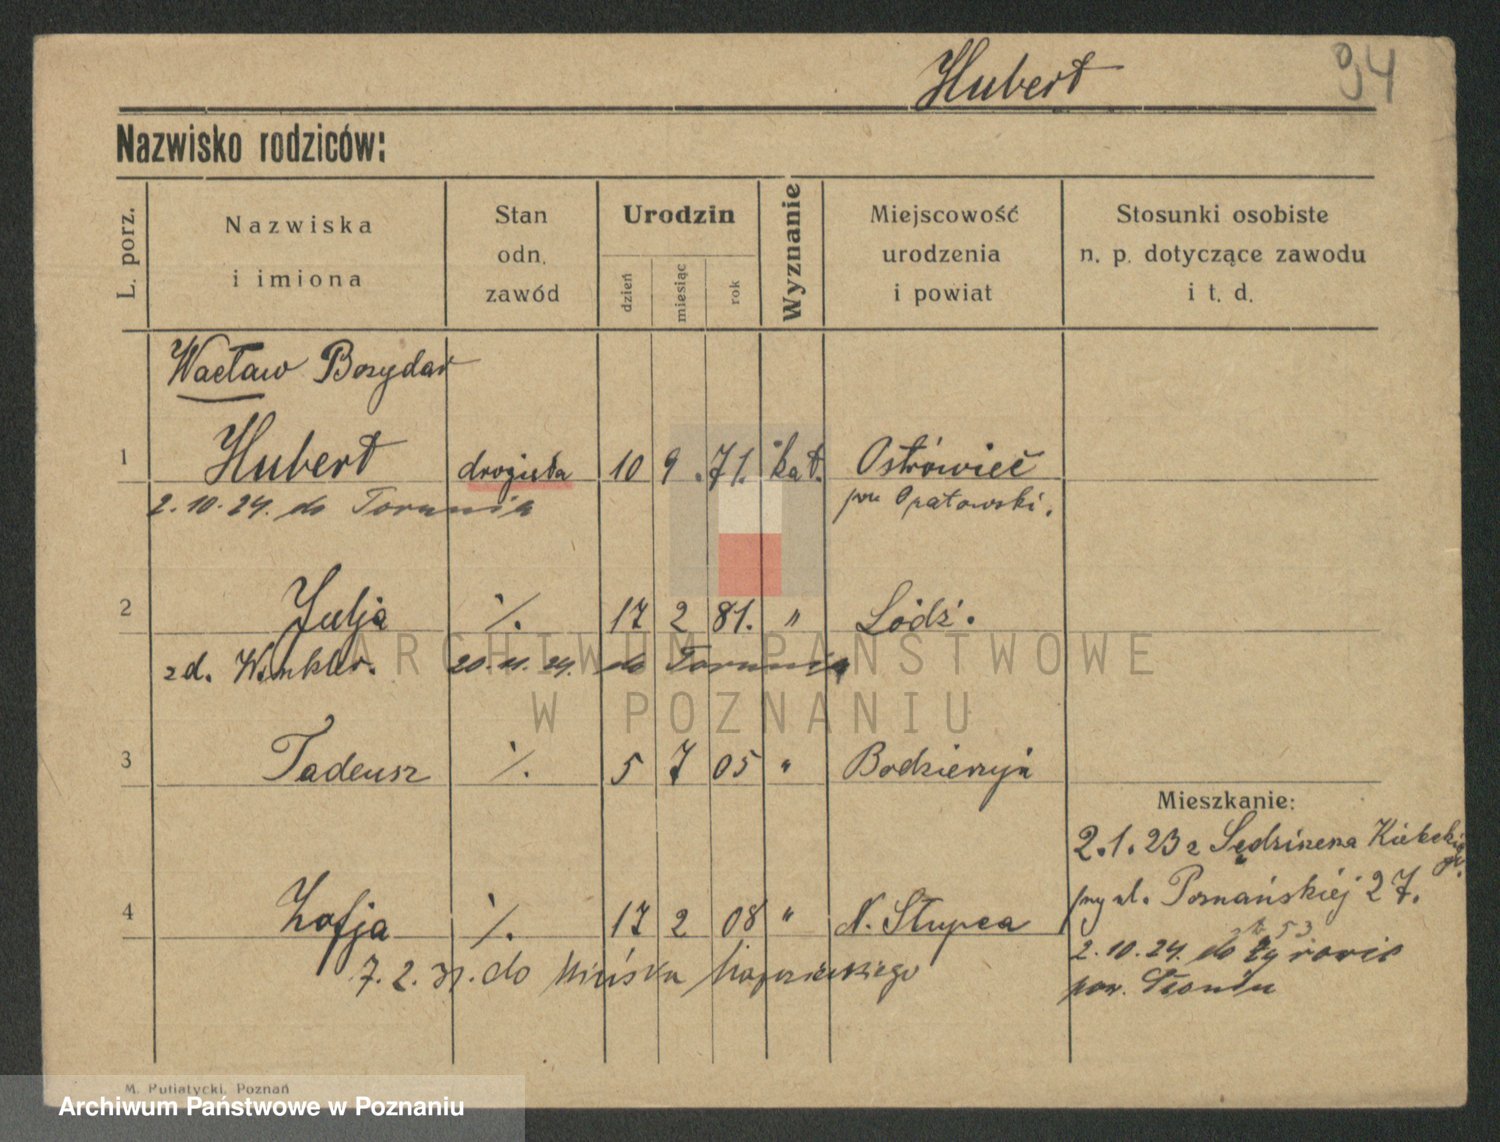 Hubert 94
Nazwisko rodziców:
L. porz.
Nazwiska
i imiona
Stan
odn.
zawód
Urodzin
dzień
miesiąc
rok
Wyznanie
Miejscowość
urodzenia
i powiat
Stosunki osobiste
n. p. dotyczące zawodu
i t. d.
Wacław Bozydar
1 Hubert drogista 10 9 .71. kat. Ostrówiec
2.10.24. do Torunia pow Opatowski.
2 Julja %. 17 2 81. " Lódź.
zd. Winkler. 20.11.24. do Torunia
3 Tadeusz %. 5 7 05 " Bodzienzyn
Mieszkanie:
2.1.23 z Sędzinena
przy ul. Poznańskiej 27.
4 Zofja %. 17 2 08 " N. Słupca
2.10.24. do
pow.
7.2. do Mińska Mazowieckiego
M. Putiatycki, Poznań
ARCHIWUM PAŃSTWOWE
W POZNANIU
Archiwum Państwowe w Poznaniu